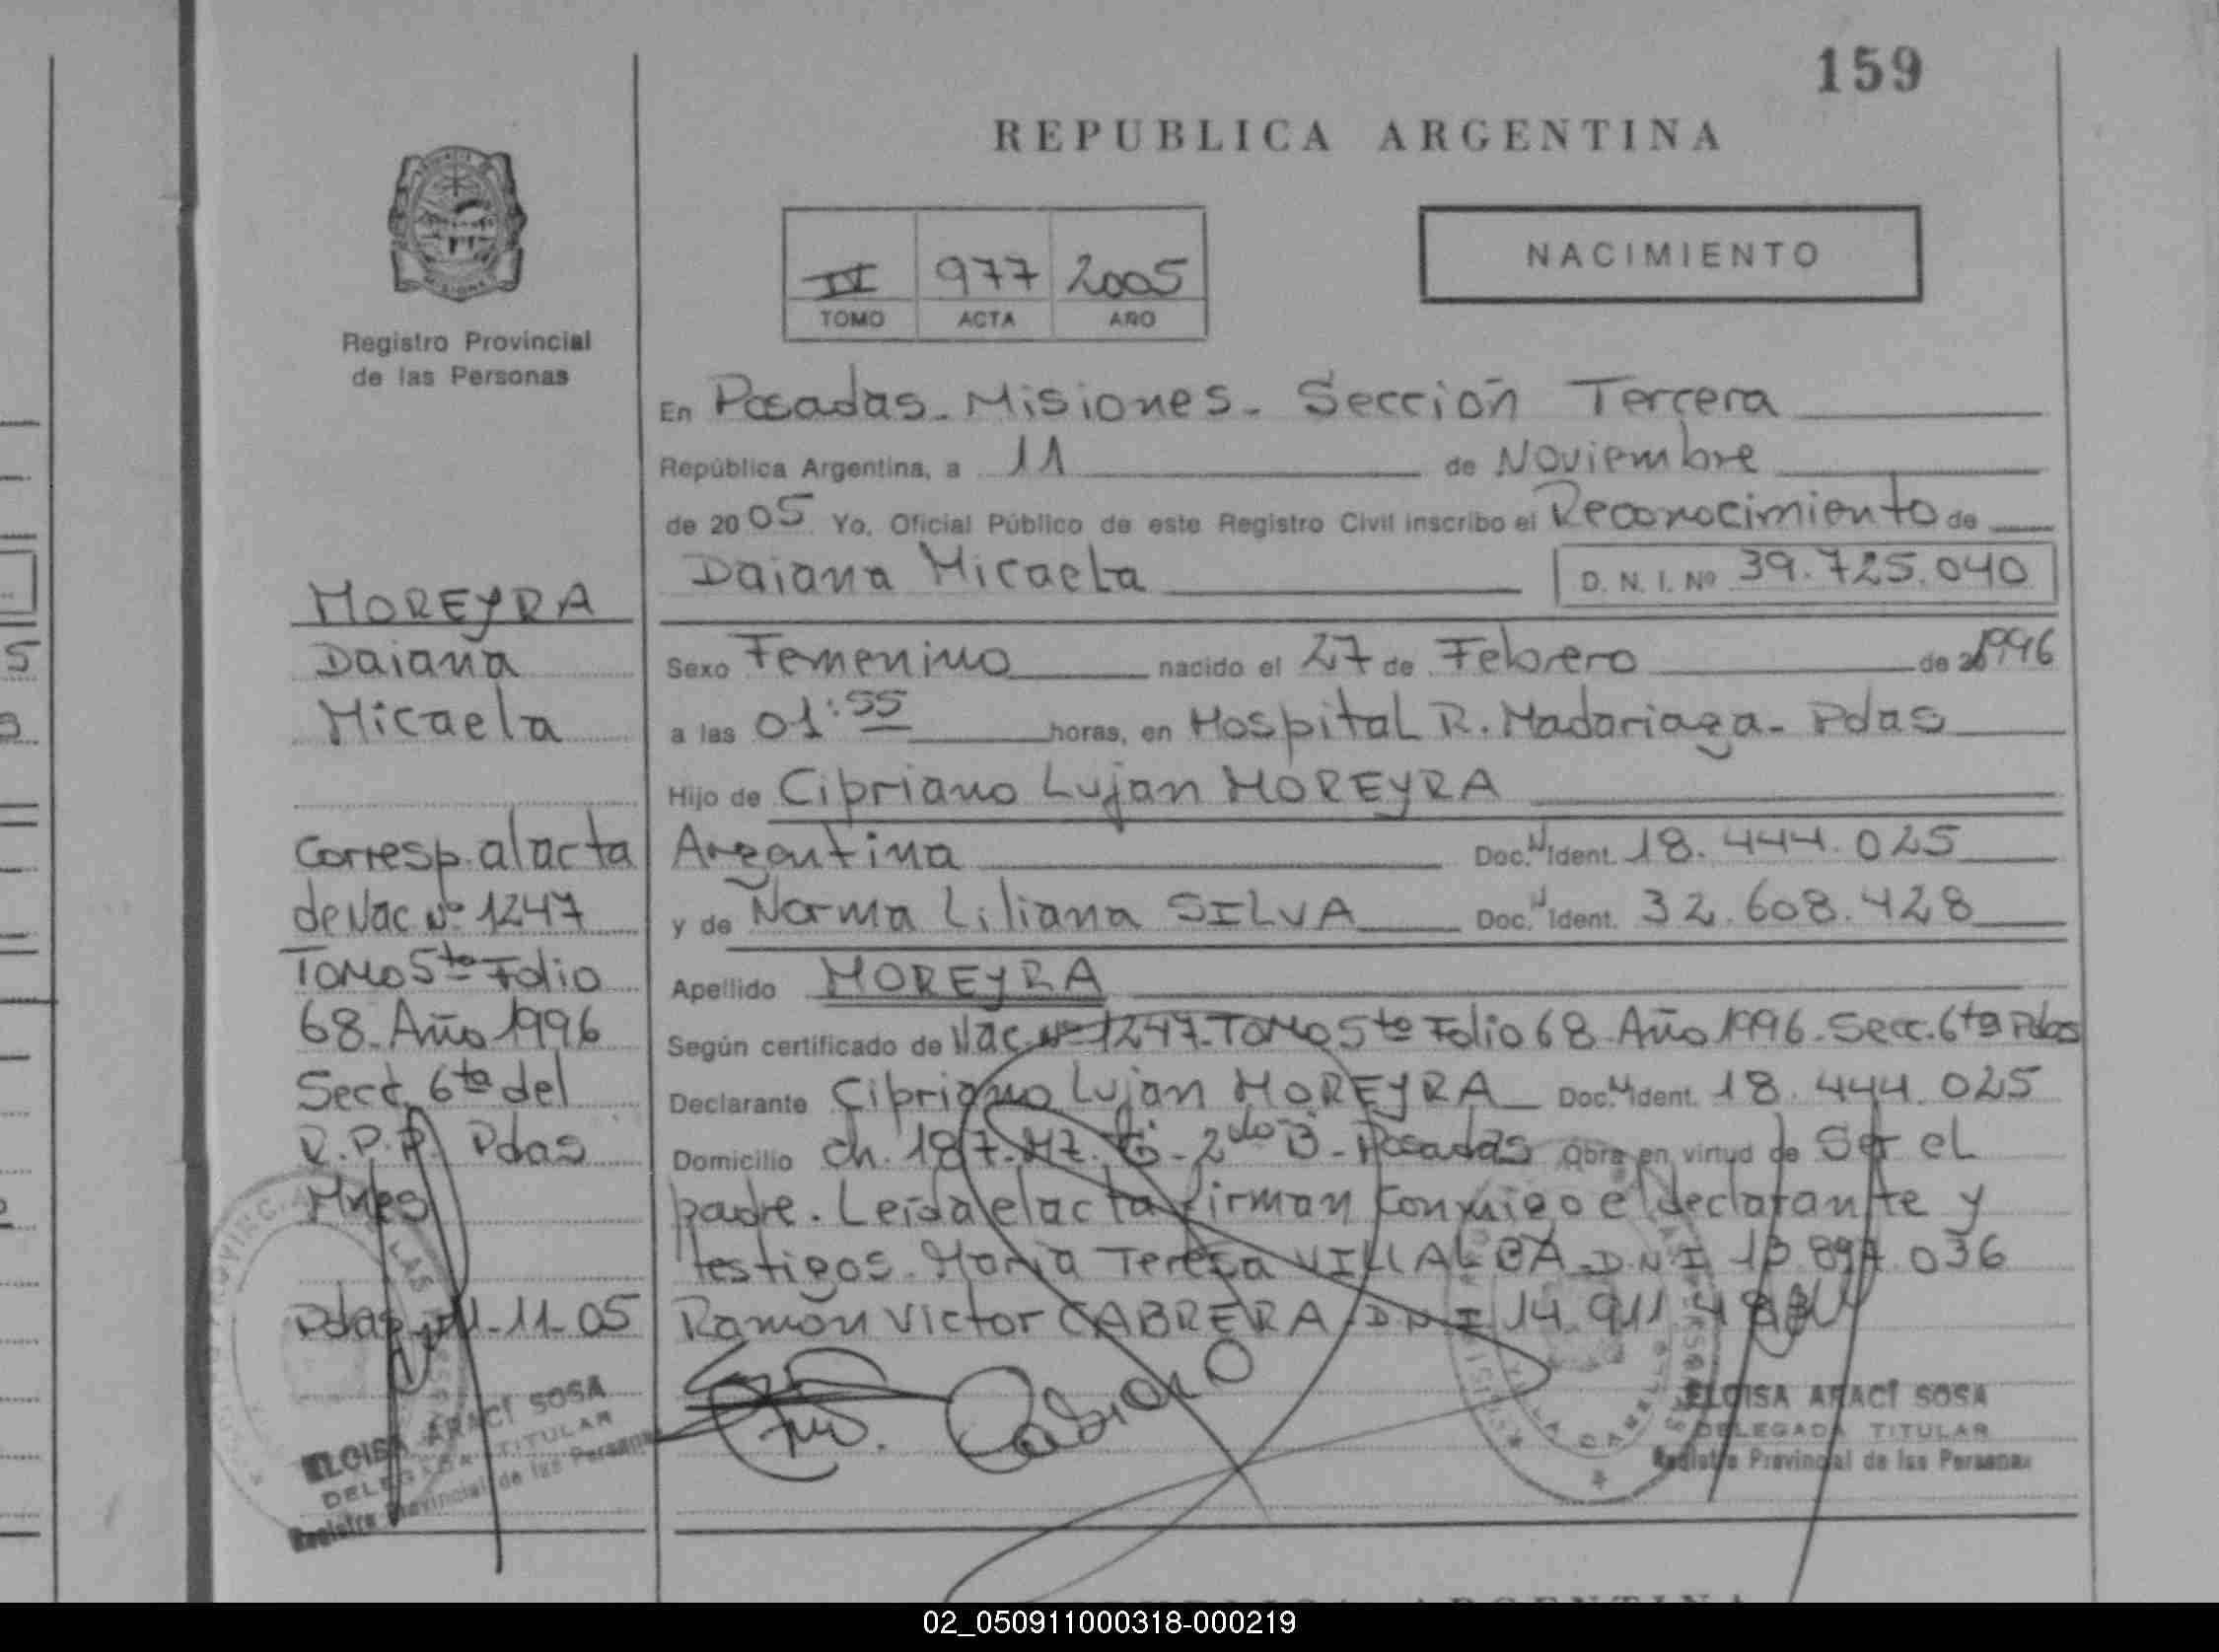 159
REPUBLICA ARGENTINA
NACIMIENTO
IV 977 2005
TOMO ACTA AÑO
Registro Provincial
de las Personas
En Posadas - Misiones - Sección Tercera
República Argentina, a 11 de Noviembre
de 2005 Yo, Oficial Público de este Registro Civil inscribo el Reconocimiento de
Daiana Micaela D. N. I. Nº 39.725.040
Sexo Femenino nacido el 27 de Febrero de 1996
a las 01:55 horas, en Hospital R. Madariaga - Pdas
Hijo de Cipriano Lujan MOREYRA
Argentina Doc. N Ident. 18.444.025
y de Norma Liliana SILVA Doc. N Ident. 32.608.428
Apellido MOREYRA
Según certificado de Nac. Nº 1247 - Tomo 5to Folio 68 - Año 1996 - Secc. 6ta Pdas
Declarante Cipriano Lujan MOREYRA Doc. N Ident. 18.444.025
Domicilio Ch. 187 - 2do B - Posadas Obra en virtud de Ser el
padre. Leída el acta firman conmigo el declarante y
testigos. María Teresa VILLALBA D.N.I 036
Ramón Victor CABRERA D.N.I 14.911
MOREYRA
Daiana
Micaela
Corresp. al acta
de Nac Nº 1247
Tomo 5to Folio
68 - Año 1996
Secc. 6ta del
R.P.P. Pdas
Mnes
Pdas 11-11-05
ELOISA ARACI SOSA
DELEGADA TITULAR
Registro Provincial de las Personas
ELOISA ARACI SOSA
DELEGADA TITULAR
Registro Provincial de las Personas
02_050911000318-000219